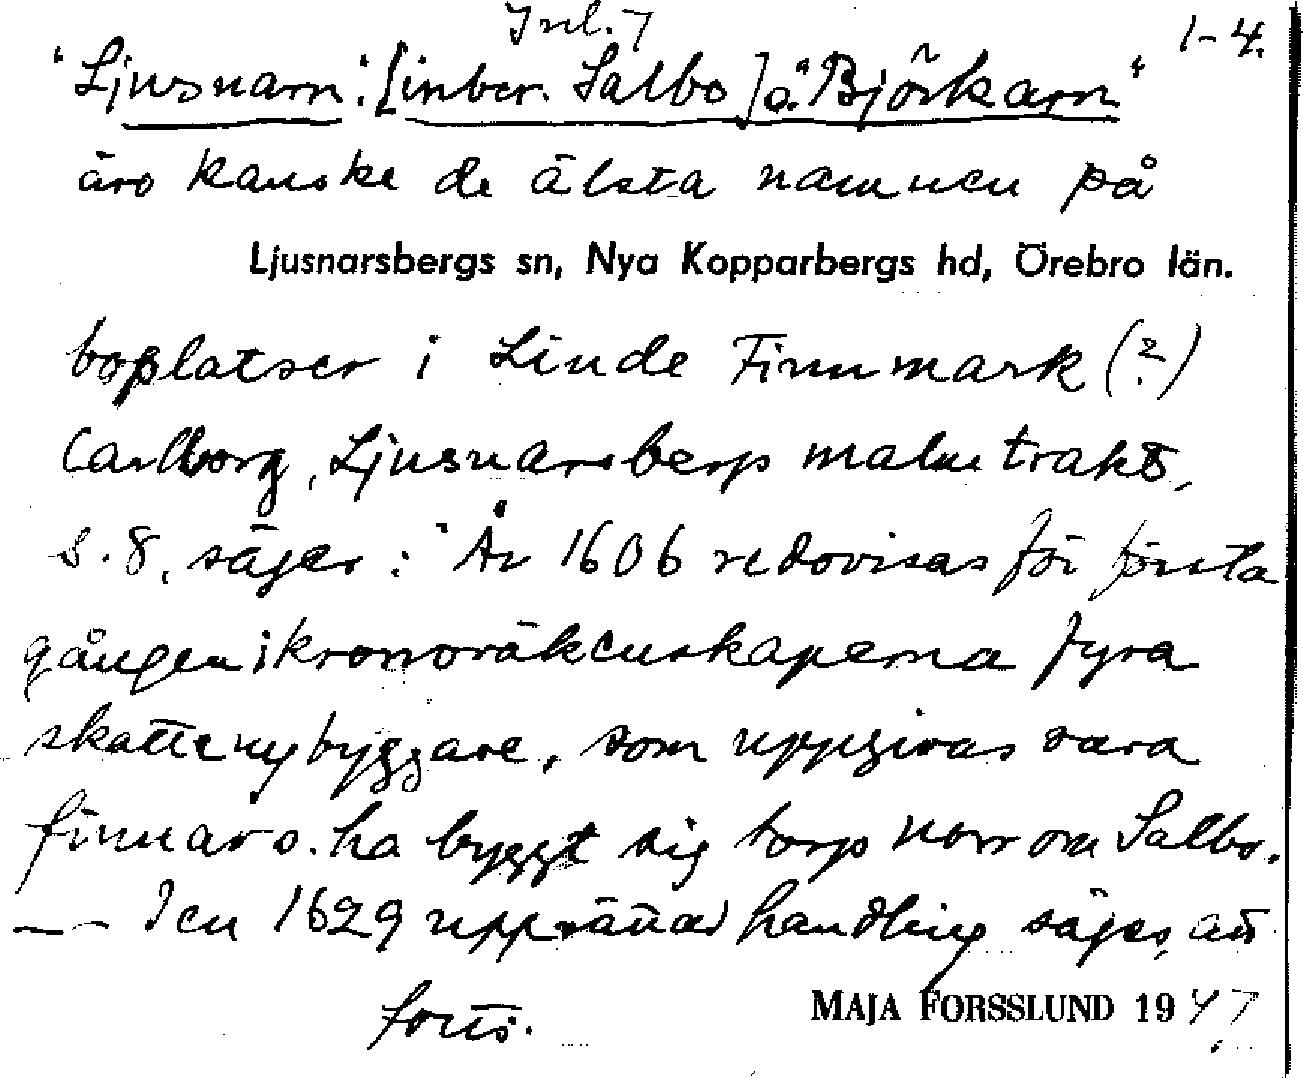 Inl. 7
1-4.
"Ljusnarn". [inber. Salbo] o. "Björkarn"
äro kanske de älsta namnen på
Ljusnarsbergs sn, Nya Kopparbergs hd, Örebro län.
boplatser i Linde Finnmark (?)
Carlborg, Ljusnarsbergs malmtrakt,
s. 8, säger: "År 1606 redovisas för första
gången i kronoräkenskaperna fyra
skattenybyggare, som uppgivas vara
finnar o. ha byggt sig torp norr om Salbo.
— - I en 1629 upprättad handling säges, att
forts.
MAJA FORSSLUND 1947